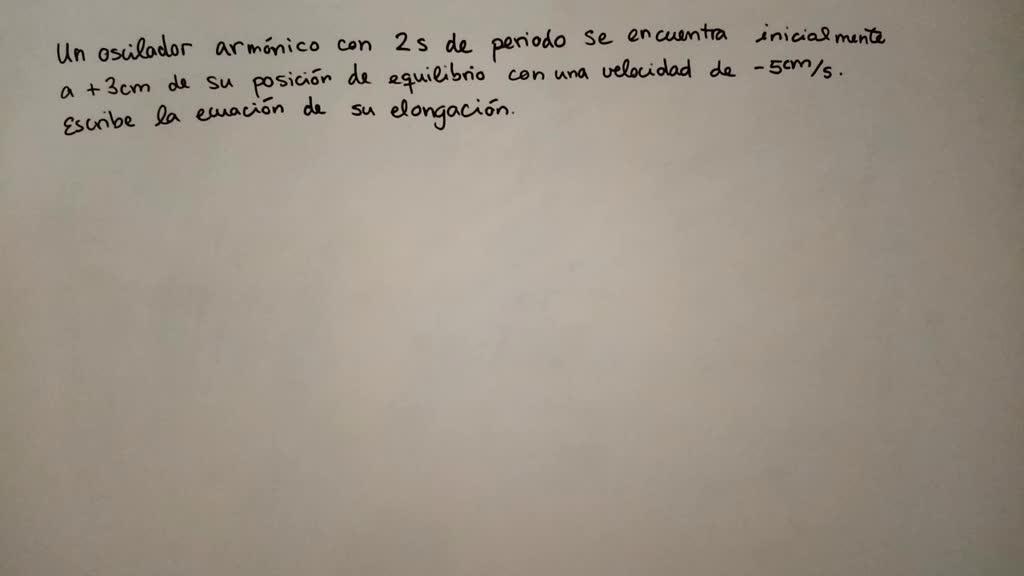 Un oscilador armónico con 2s de periodo se encuentra inicialmente
a +3cm de su posición de equilibrio con una velocidad de -5cm/s.
Escribe la ecuación de su elongación.